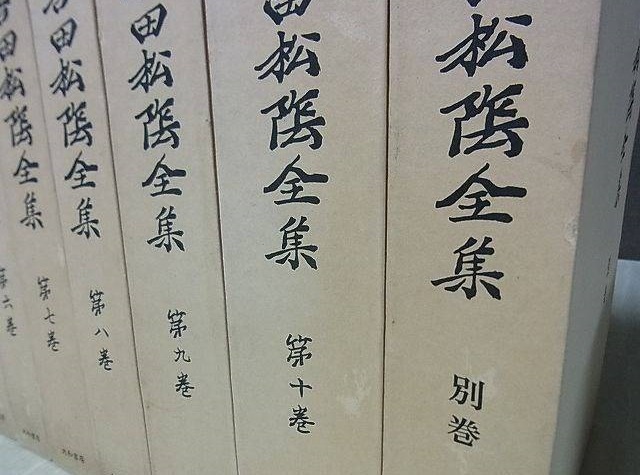 松陰全集
別巻
田松陰全集
第十巻
田松陰全集
第九巻
吉田松陰全集
第八巻
吉田松陰全集
第七巻
田松陰全集
第六巻